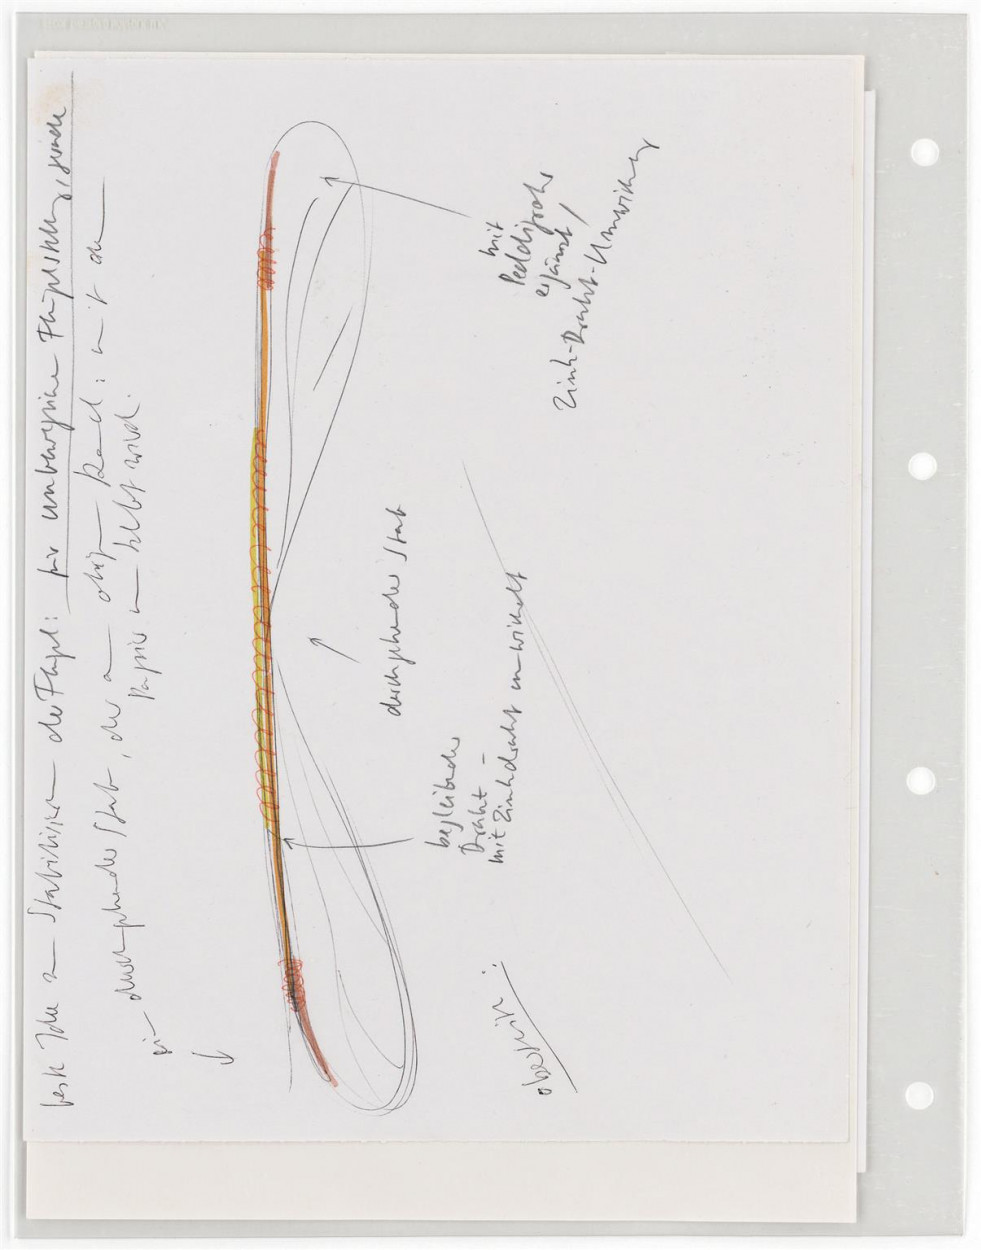 beste Idee zu Stabilisieren der Flügel: für unbewegliche Flügelstellung, starke
ein durchgehender Stab, der am oberen Rand: mit an
Papier umklebt wird.
mit
Peddigrohr
ergänzt /
Zink-Draht-Umwicklung
durchgehender Stab
begleitender
Draht -
mit Zinkdraht umwickelt